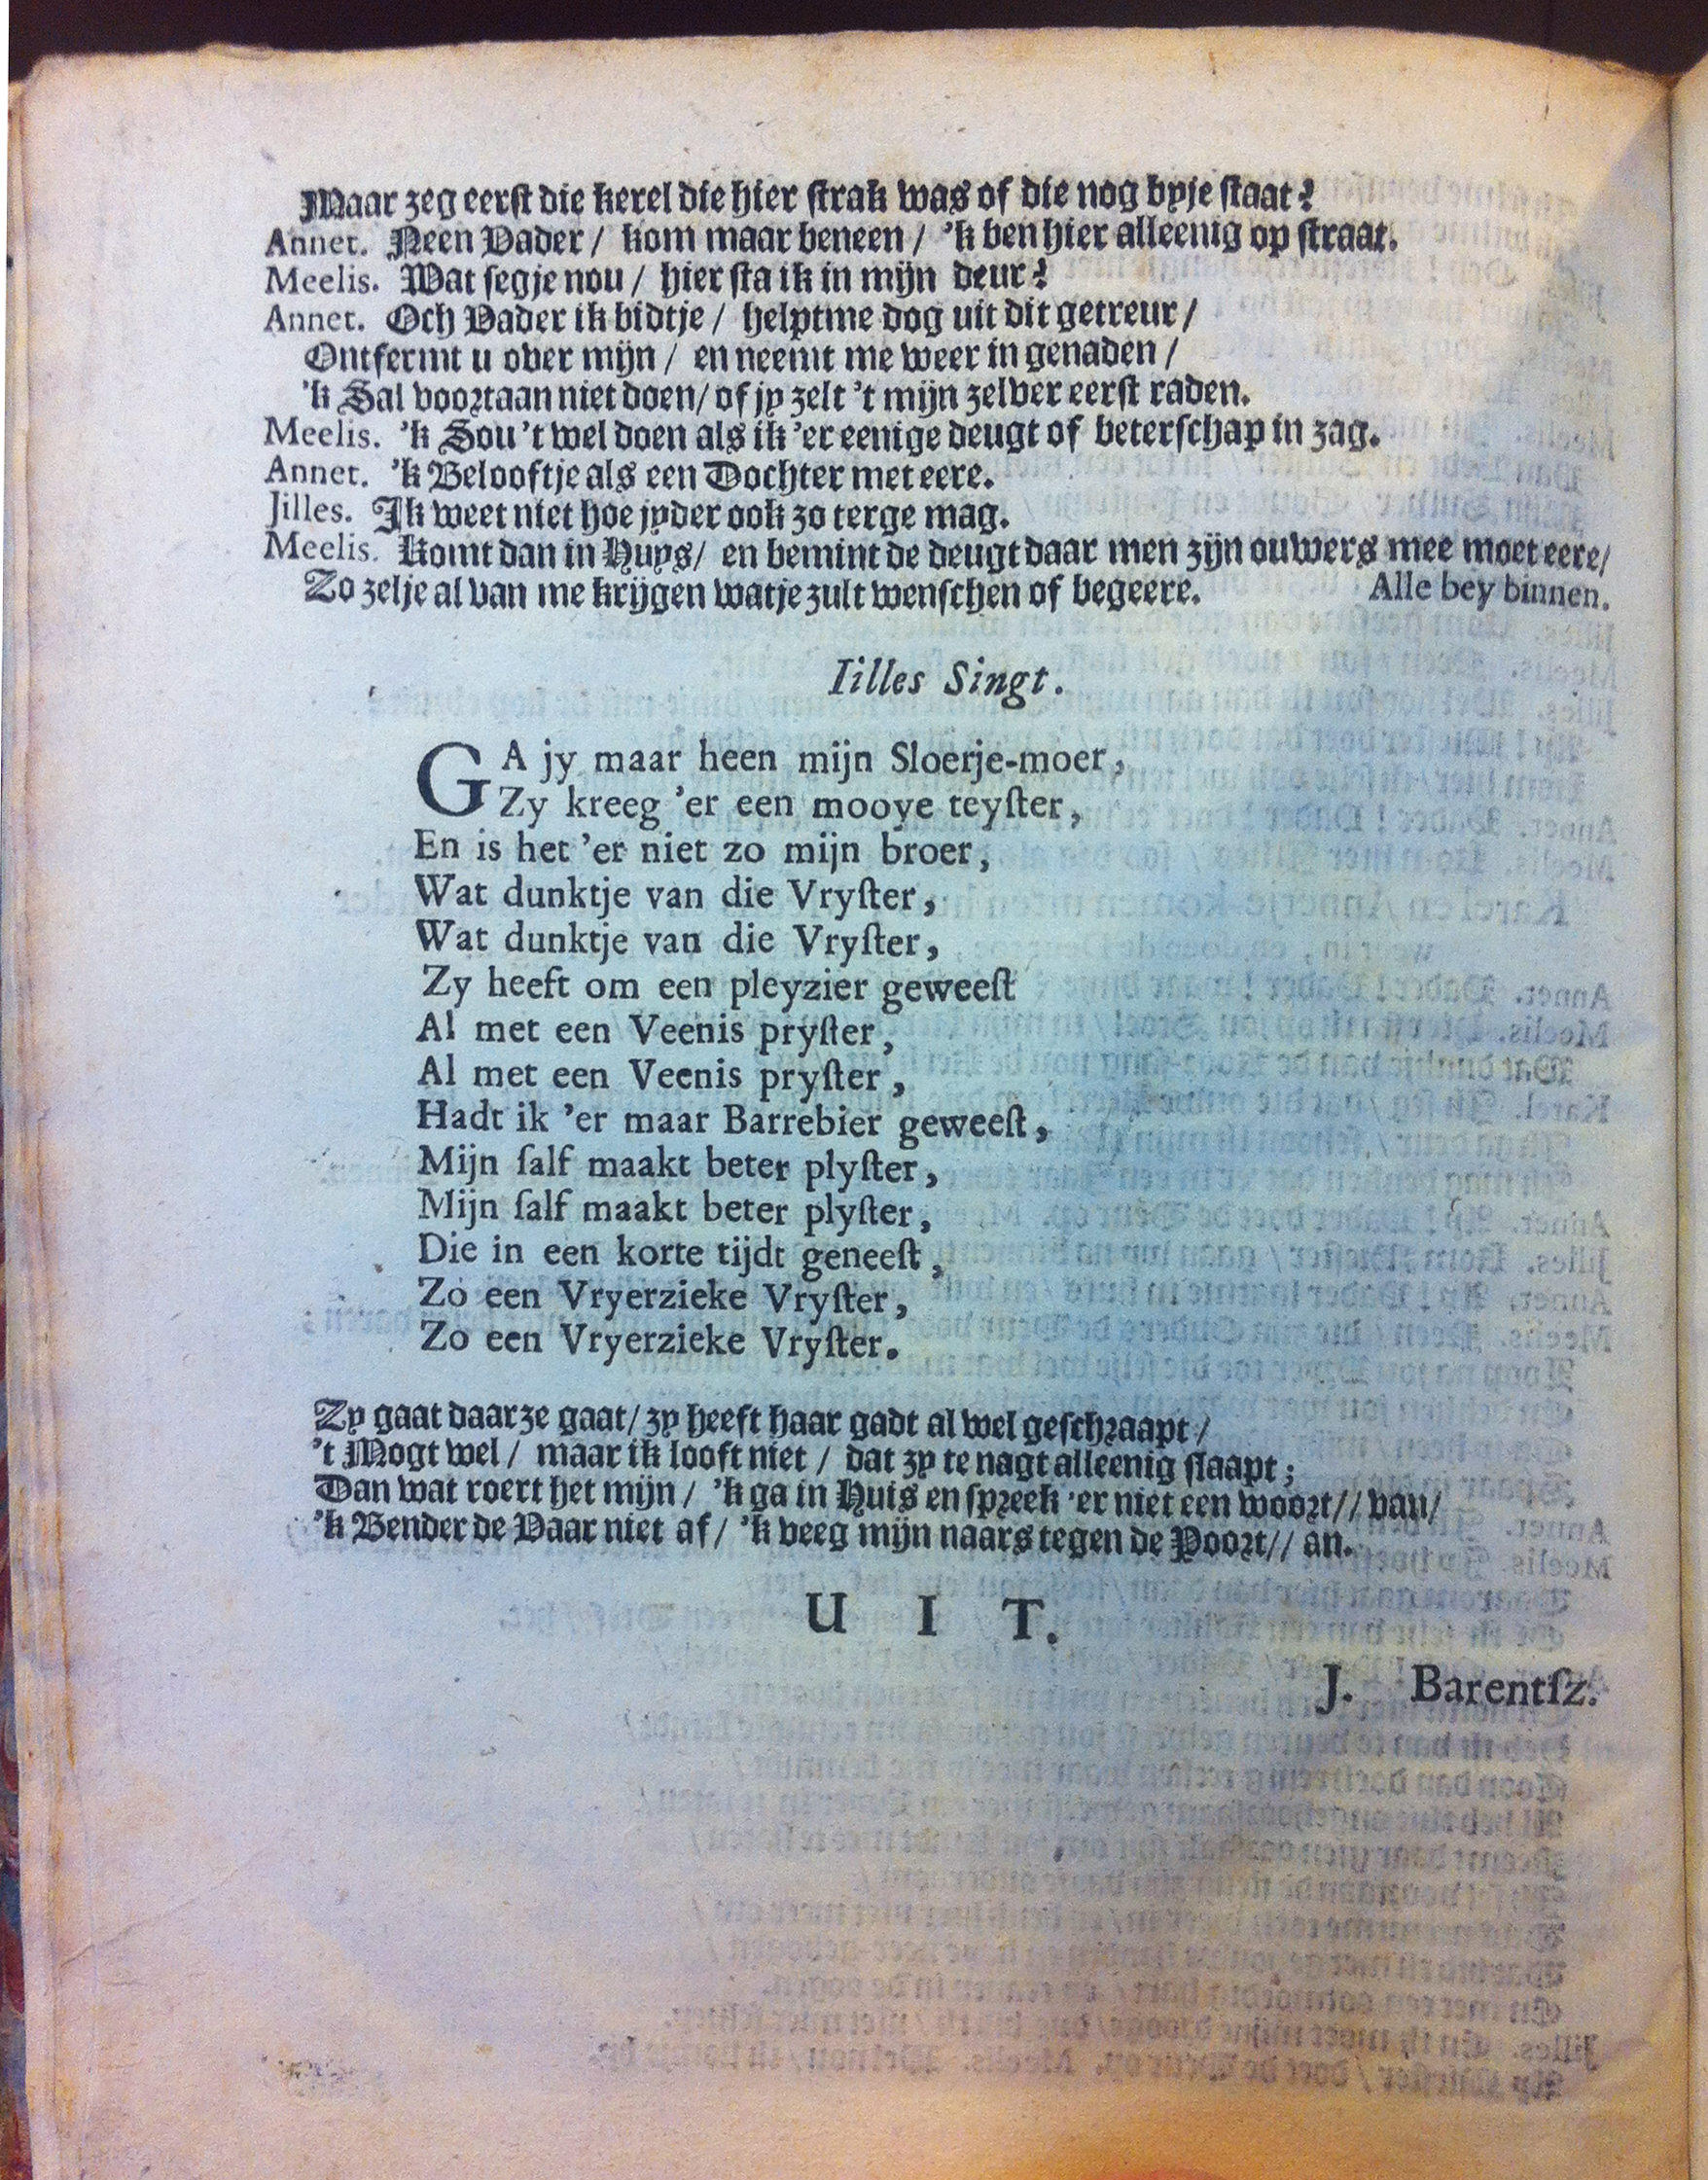 Maar zeg eerst die kerel die hier strak was of die nog byje staat?
Annet. Neen Vader / kom maar beneen / 'k ben hier alleenig op straat.
Meelis. Wat segje nou / hier sta ik in mijn deur?
Annet. Och Vader ik bidtje / helptme dog uit dit getreur /
Ontfermt u over mijn / en neemt me weer in genaden /
'k Sal voortaan niet doen / of jy zelt 't mijn zelver eerst raden.
Meelis. 'k Sou 't wel doen als ik 'er eenige deugt of beterschap in zag.
Annet. 'k Belooftje als een Dochter met eere.
Jilles. Ik weet niet hoe jyder ook zo terge mag.
Meelis. Komt dan in Huys / en bemint de deugt daar men zijn ouwers mee moet eere /
Zo zelje al van me krijgen watje zult wenschen of begeere. Alle bey binnen.
Iilles Singt.
GA jy maar heen mijn Sloerje-moer,
Zy kreeg 'er een mooye teyſter,
En is het 'er niet zo mijn broer,
Wat dunktje van die Vryſter,
Wat dunktje van die Vryſter,
Zy heeft om een pleyzier geweeſt
Al met een Veenis pryſter,
Al met een Veenis pryſter,
Hadt ik 'er maar Barrebier geweeſt,
Mijn ſalf maakt beter plyſter,
Mijn ſalf maakt beter plyſter,
Die in een korte tijdt geneeſt,
Zo een Vryerzieke Vryſter,
Zo een Vryerzieke Vryſter.
Zy gaat daar ze gaat / zy heeft haar gadt al wel geschraapt /
't Mogt wel / maar ik looft niet / dat zy te nagt alleenig slaapt;
Dan wat roert het mijn / 'k ga in Huis en spreek 'er niet een woort // van /
'k Bender de Vaar niet af / 'k veeg mijn naars tegen de Poort // an.
U I T.
J. Barentſz.